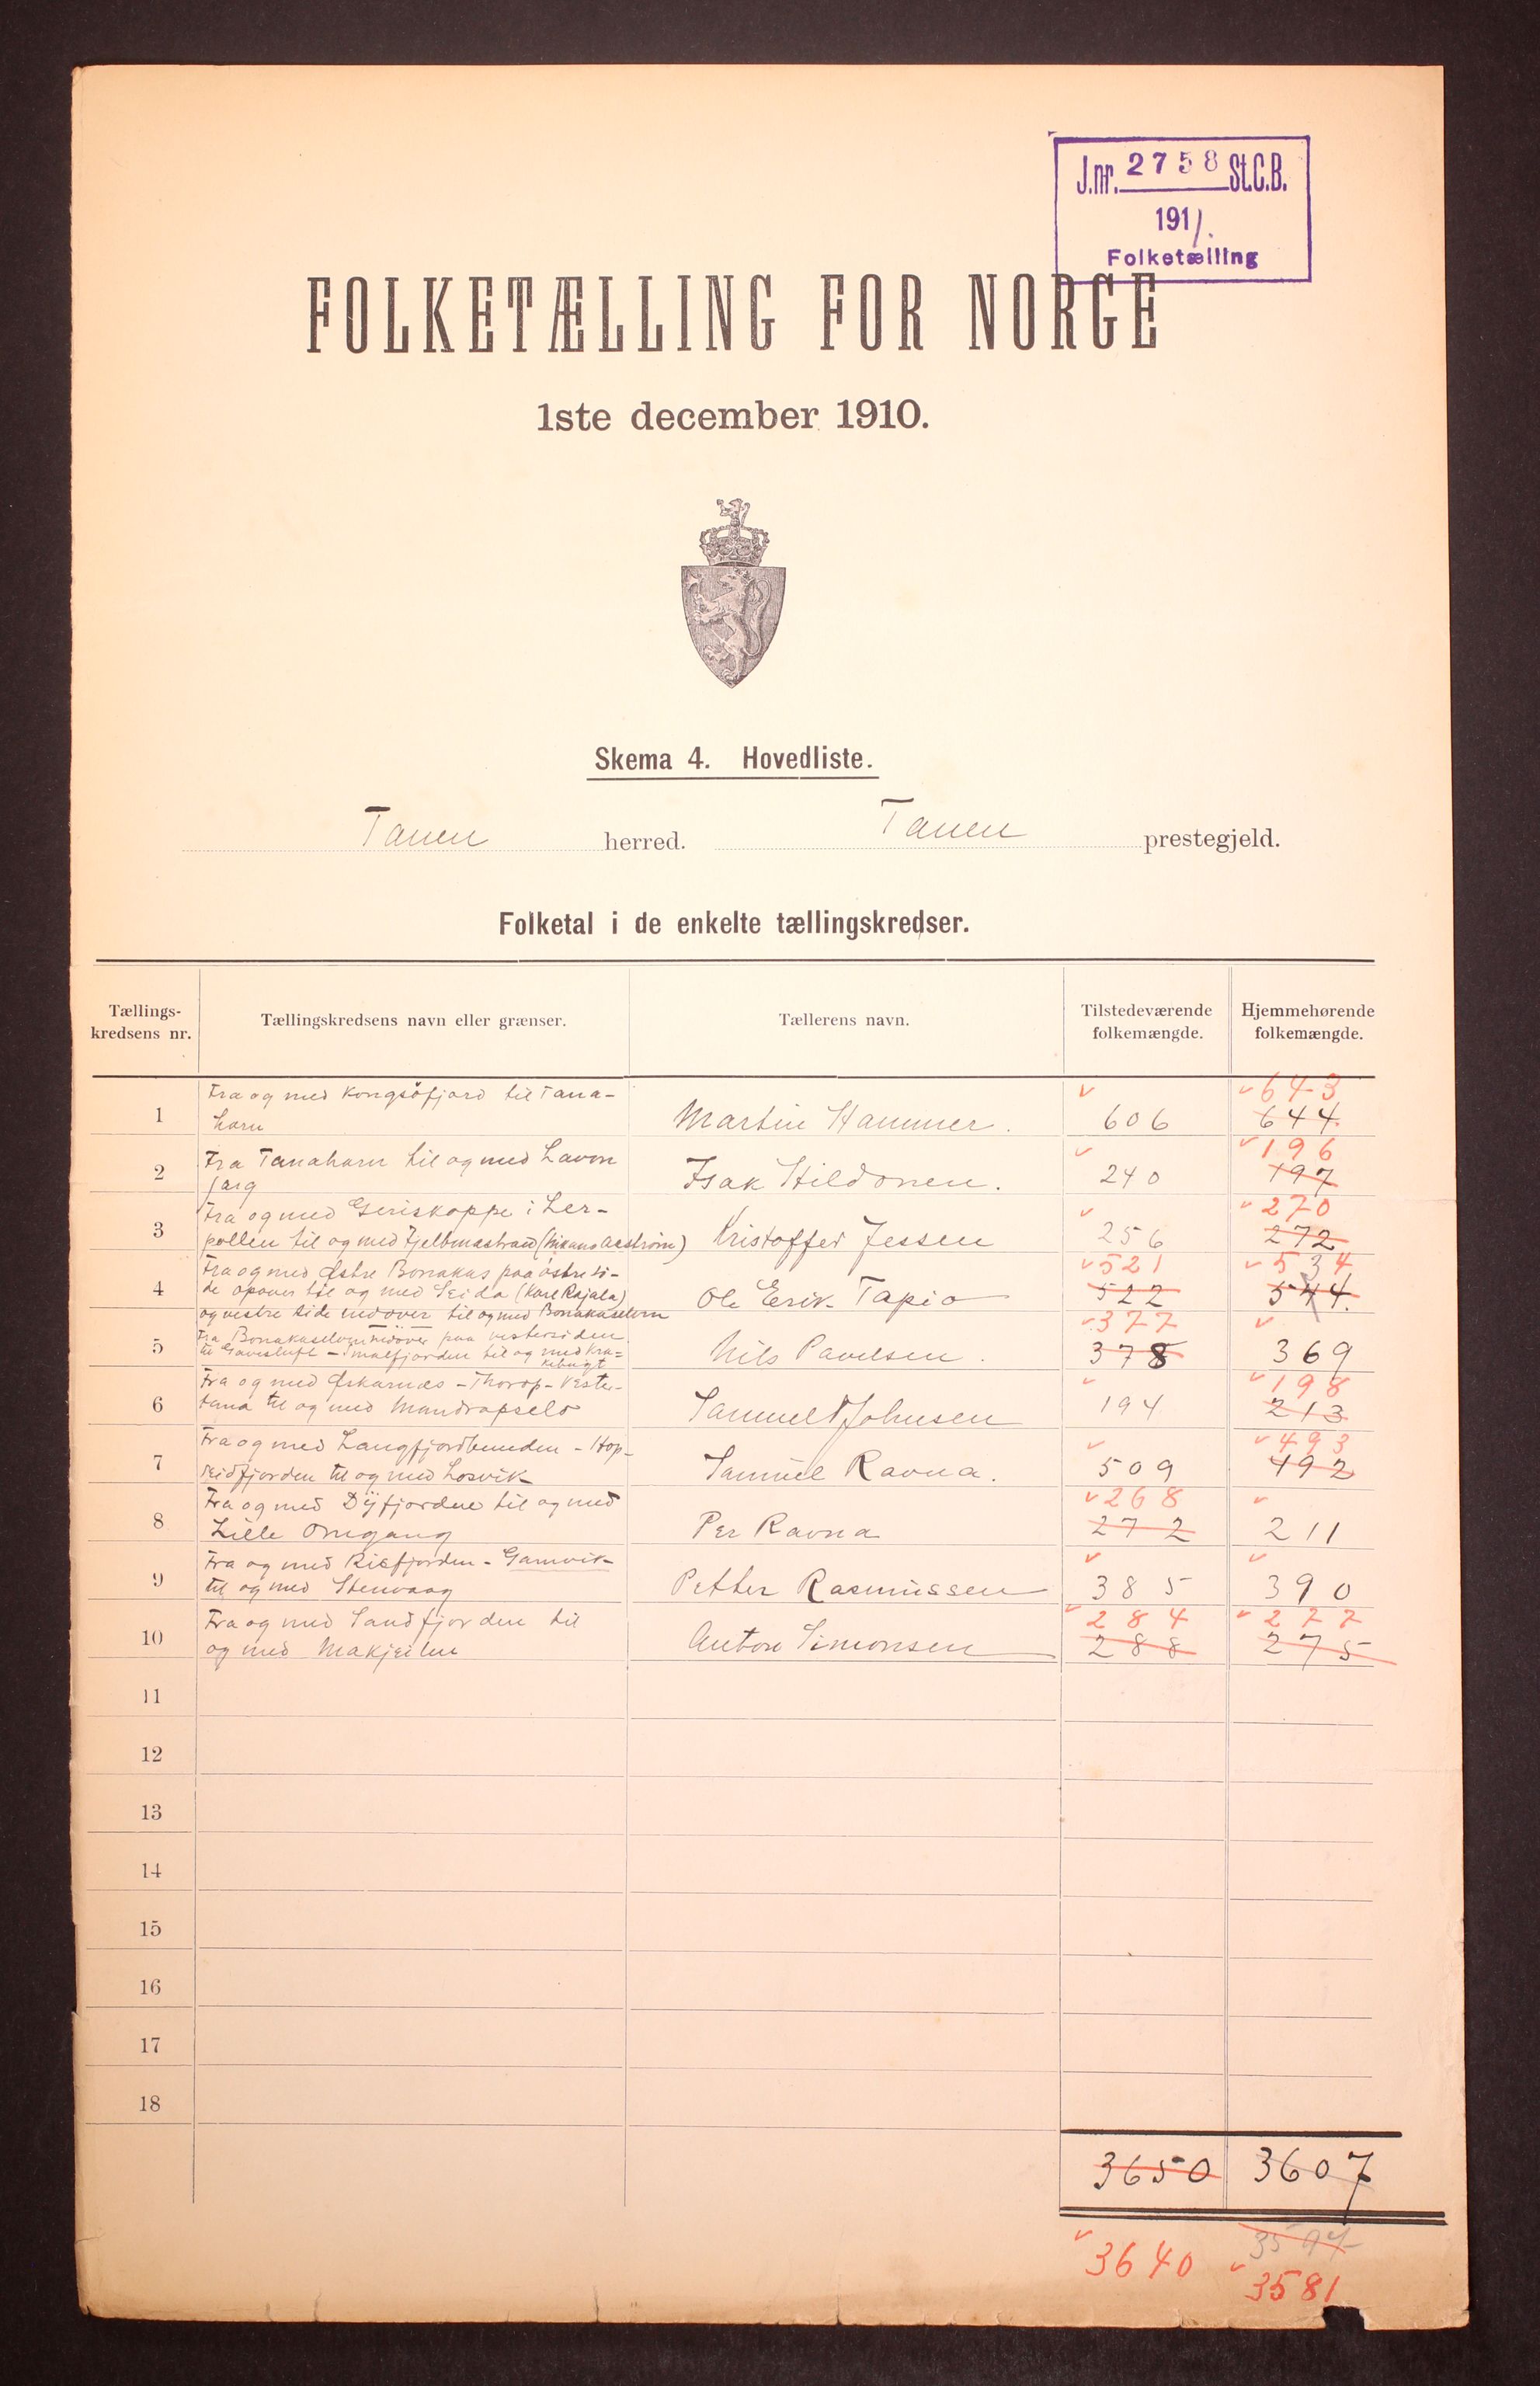 J.nr. 2758 St.C.B.
1911.
Folketælling
FOLKETÆLLING FOR NORGE
1ste december 1910.
Skema 4. Hovedliste.
Tanen herred. Tanen prestegjeld.
Folketal i de enkelte tællingskredser.
Tællings-
kredsens nr.
Tællingskredsens navn eller grænser.
Tællerens navn.
Tilstedeværende
folkemængde.
Hjemmehørende
folkemængde.
Fra og med Kongsöfjord til Tana- 643
1 horn Martin Hammer. 606 644
Fra Tanahorn til og med Lavon 196
2 jarg Isak Hildonen. 240 197
Fra og med Giriskoppe i Ler- 270
3 pollen til og med Fjelbmastrand Kristoffer Jessen 256 272
Fra og med Østre Bonakas paa östre si- 521 534
4 de opover til og med Seida (Karl Rajala) Ole Erik Tapio 522 544.
og vestre side nedover til og med Bonakaselven
Fra Bonakaselven nedover paa vestersiden 377
5 til Gavesluft - Smalfjorden til og med Kra= Nils Pavelsen. 378 369
kebugt
Fra og med Øskarnæs - Thorop - Vester- 198
6 tana til og med Mandrapselv Samuel Johnsen 194 213
Fra og med Langfjordbunden - Hop- 493
7 seidfjorden til og med Losvik Samuel Ravna. 509 492
Fra og med Dyfjorden til og med 268
8 Lille Omgang Per Ravna 272 211
Fra og med Risfjorden - Gamvik
9 til og med Stenvaag Petter Rasmussen 385 390
Fra og med Sandfjorden til 284 277
10 og med Makjeilen Anton Simonsen 288 275
11
12
13
14
15
16
17
18
3650 3607
3594
3640 3581